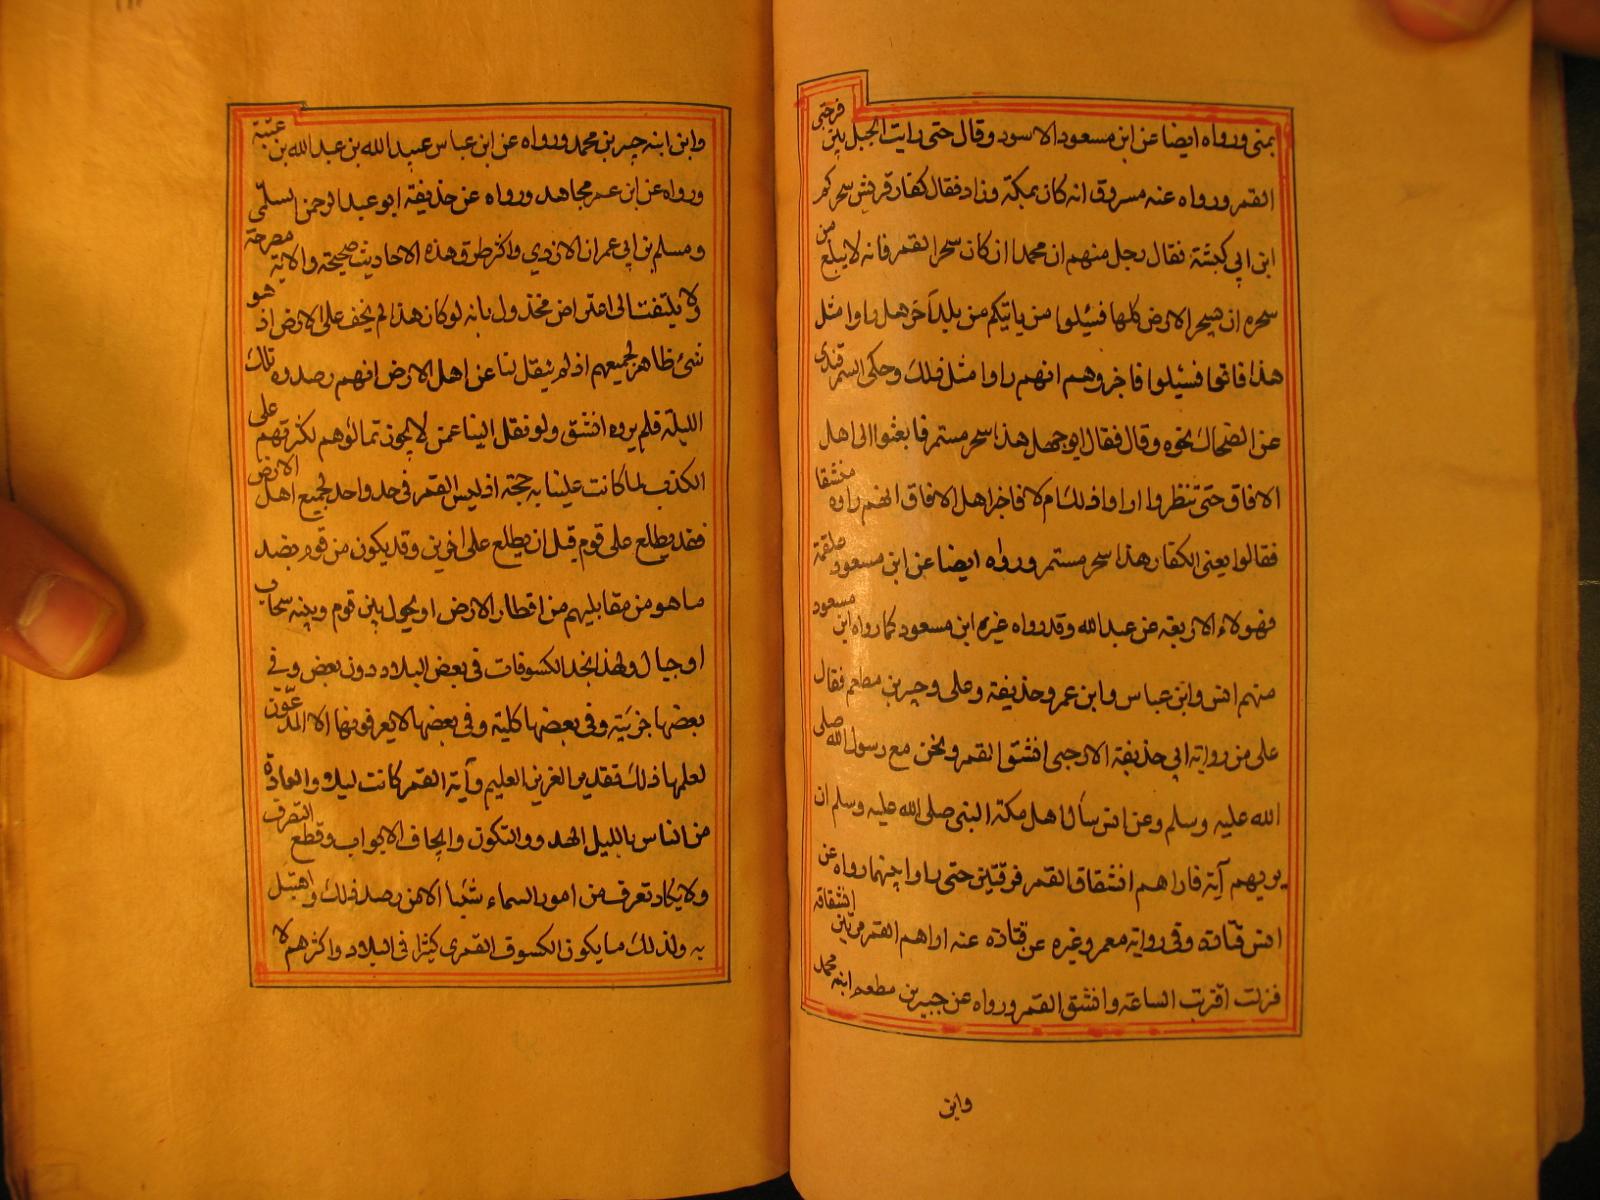 بمنى ورواه ايضا عن ابن مسعود الاسود وقال حتى رايت الجبل بين فرجتى
القمر ورواه عنه مسروق انه كان بمكة وزاد فقال كفار قريش سحركم
ابن ابي كبشة فقال رجل منهم ان محمدا ان كان سحر القمر فانه لا يبلغ من
سحره ان يسحر الارض كلها فسئلوا من ياتيكم من بلد آخر هل راوا مثل
هذا فاتوا فسئلوا فاخبروهم انهم راوا مثل ذلك وحكى السمرقندى
عن الضحاك نحوه وقال فقال ابو جهل هذا سحر مستمر فابعثوا الى اهل
الافاق حتى تنظروا اراوا ذلك ام لا فاخبر اهل الافاق انهم راوه منشقا
فقالوا يعني الكفار هذا سحر مستمر ورواه ايضا عن ابن مسعود علقمة
فهولاء الاربعه عن عبد الله وقد رواه غيره ابن مسعود كما رواه ابن مسعود
منهم انس وابن عباس وابن عمر وحذيفة وعلى وجبير بن مطعم فقال
على من رواية ابي حذيفة الارحبى انشق القمر ونحن مع رسول الله صلى
الله عليه وسلم وعن انس سأل اهل مكة النبى صلى الله عليه وسلم ان
يريهم آية فاراهم انشقاق القمر فرقتين حتى راوا بينهما رواه عن
انس قتادة وفى رواية معمر وغيره عن قتادة عنه اراهم القمر مرتين انشقاقه
فنزلت اقتربت الساعة وانشق القمر ورواه عن جبير بن مطعم ابنه محمد
وابن
وابن ابنه جبير بن محمد ورواه عن ابن عباس عبيد الله بن عبد الله بن عتبة
ورواه عن ابن عمر مجاهد ورواه عن حذيفة ابو عبد الرحمن السلمى
ومسلم بن ابي عمران الازدي واكثر طرق هذه الاحاديث صحيحة والاية مصرحة
ولا يلتفت الى اعتراض مخذول بانه لو كان هذا لم يخف على الارض اذ هو
شئ ظاهر لجميعهم اذ لم ينقل لنا عن اهل الارض انهم رصدوه تلك
الليلة فلم يروه انشق ولو نقل الينا عمن لا يجوز تمالؤهم لكثرتهم على
الكذب لما كانت علينا به حجة اذ ليس القمر في حد واحد لجميع اهل الارض
فقد يطلع على قوم قبل ان يطلع على اخرين وقد يكون من قوم بضد
ما هو من مقابليهم من اقطار الارض او يحول بين قوم وبينه سحاب
او جبال ولهذا نجد الكسوفات في بعض البلاد دون بعض وفي
بعضها جزئية وفى بعضها كلية وفى بعضها لا يعرفونها الا المدعون
لعلمها ذلك تقدير العزيز العليم وآية القمر كانت ليلا والعادة
من الناس بالليل الهدو والسكون وايجاف الابواب وقطع التصرف
ولا يكاد تعرف من امور السماء شيئا الا من رصد ذلك واهتبل
به ولذلك ما يكون الكسوف القمرى كثيرا فى البلاد واكثرهم لا